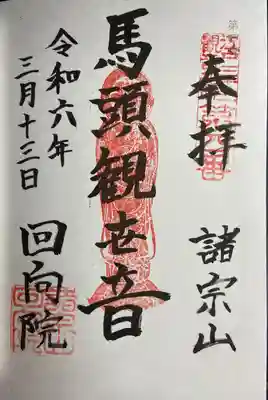 奉拝
諸宗山
馬頭観世音
令和六年
三月十三日
回向院